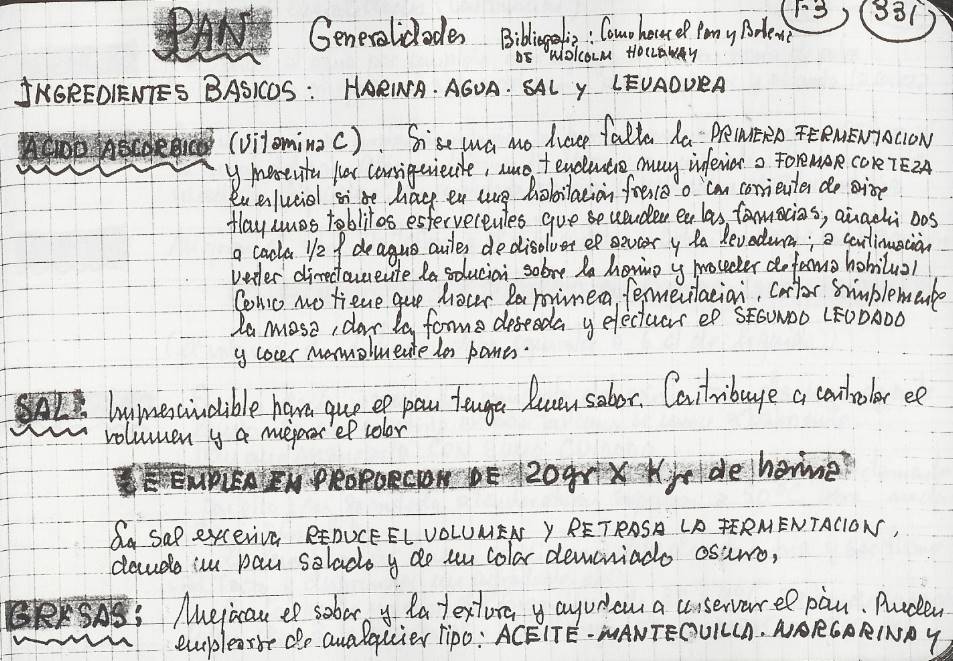 PAN Generalidades Bibliografia: Como hacer el Pan y Bolleria F-3 331
DE MALCOLM HOLLOWAY
INGREDIENTES BASICOS: HARINA. AGUA. SAL y LEVADURA
ACIDO ASCORBICO (Vitamina C). Si se usa no hace falta la PRIMERA FERMENTACION
y presenta por consiguiente, una tendencia muy inferior a FORMAR CORTEZA
en especial si se hace en una habitación fresca o con corrientes de aire
Hay unas tablitas esfervecentes que se venden en las farmacias, añadir DOS
a cada 1/2 l de agua antes de disolver el azucar y la levadura; a continuación
verter directamente la solucion sobre la harina y proceder de forma habitual
Como no tiene que hacer la primera fermentacion, cortar simplemente
la masa, dar la forma deseada y efectuar el SEGUNDO LEUDADO
y cocer normalmente los panes.
SAL: Imprescindible para que el pan tenga buen sabor. Contribuye a controlar el
volumen y a mejorar el color
SE EMPLEA EN PROPORCION DE 20gr X Kgr de harina
La sal excesiva REDUCE EL VOLUMEN Y RETRASA LA FERMENTACION,
dando un pan salado y de un color demasiado oscuro,
GRASAS: Mejoran el sabor y la textura y ayudan a conservar el pan. Pueden
emplearse de cualquier tipo: ACEITE - MANTEQUILLA. MARGARINA y